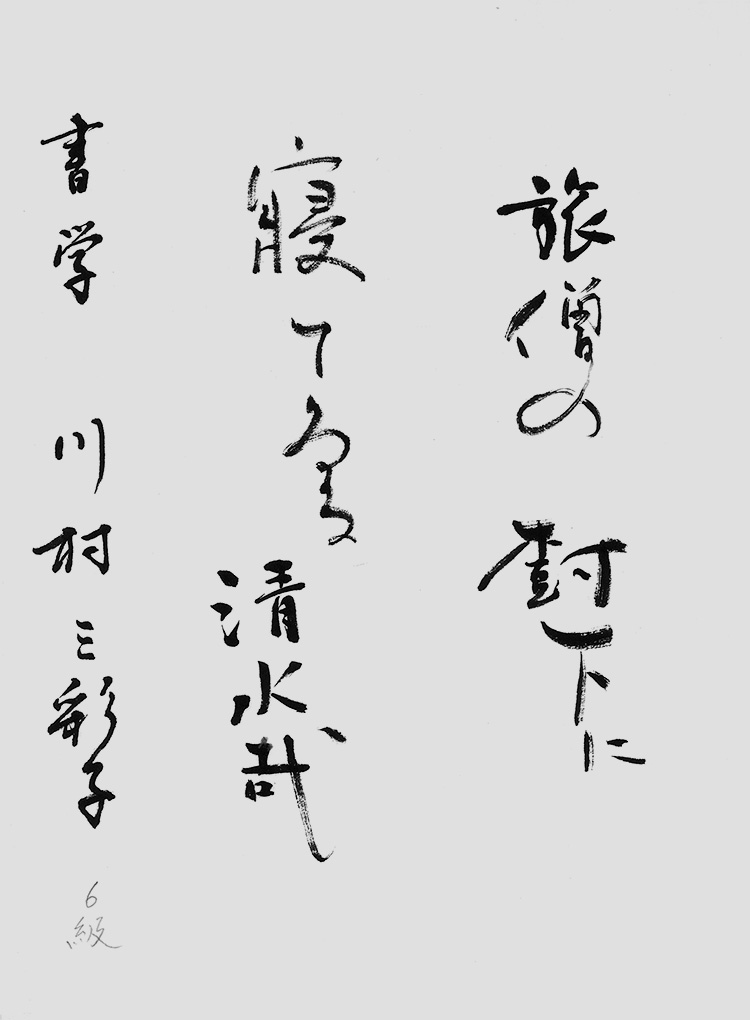 旅僧の樹下に
寝てゐる清水哉
書学 川村三彩子
6級